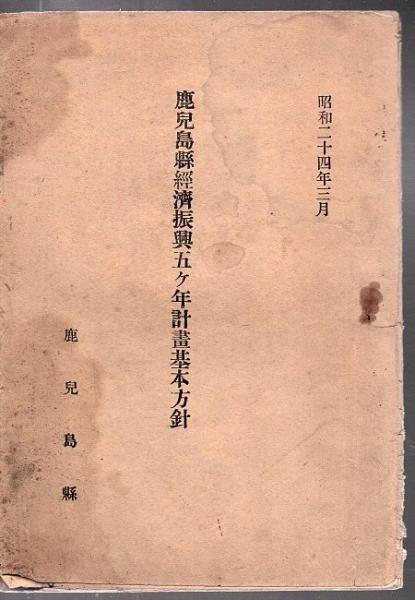 昭和二十四年三月
鹿兒島縣經濟振興五ケ年計畫基本方針
鹿兒島縣